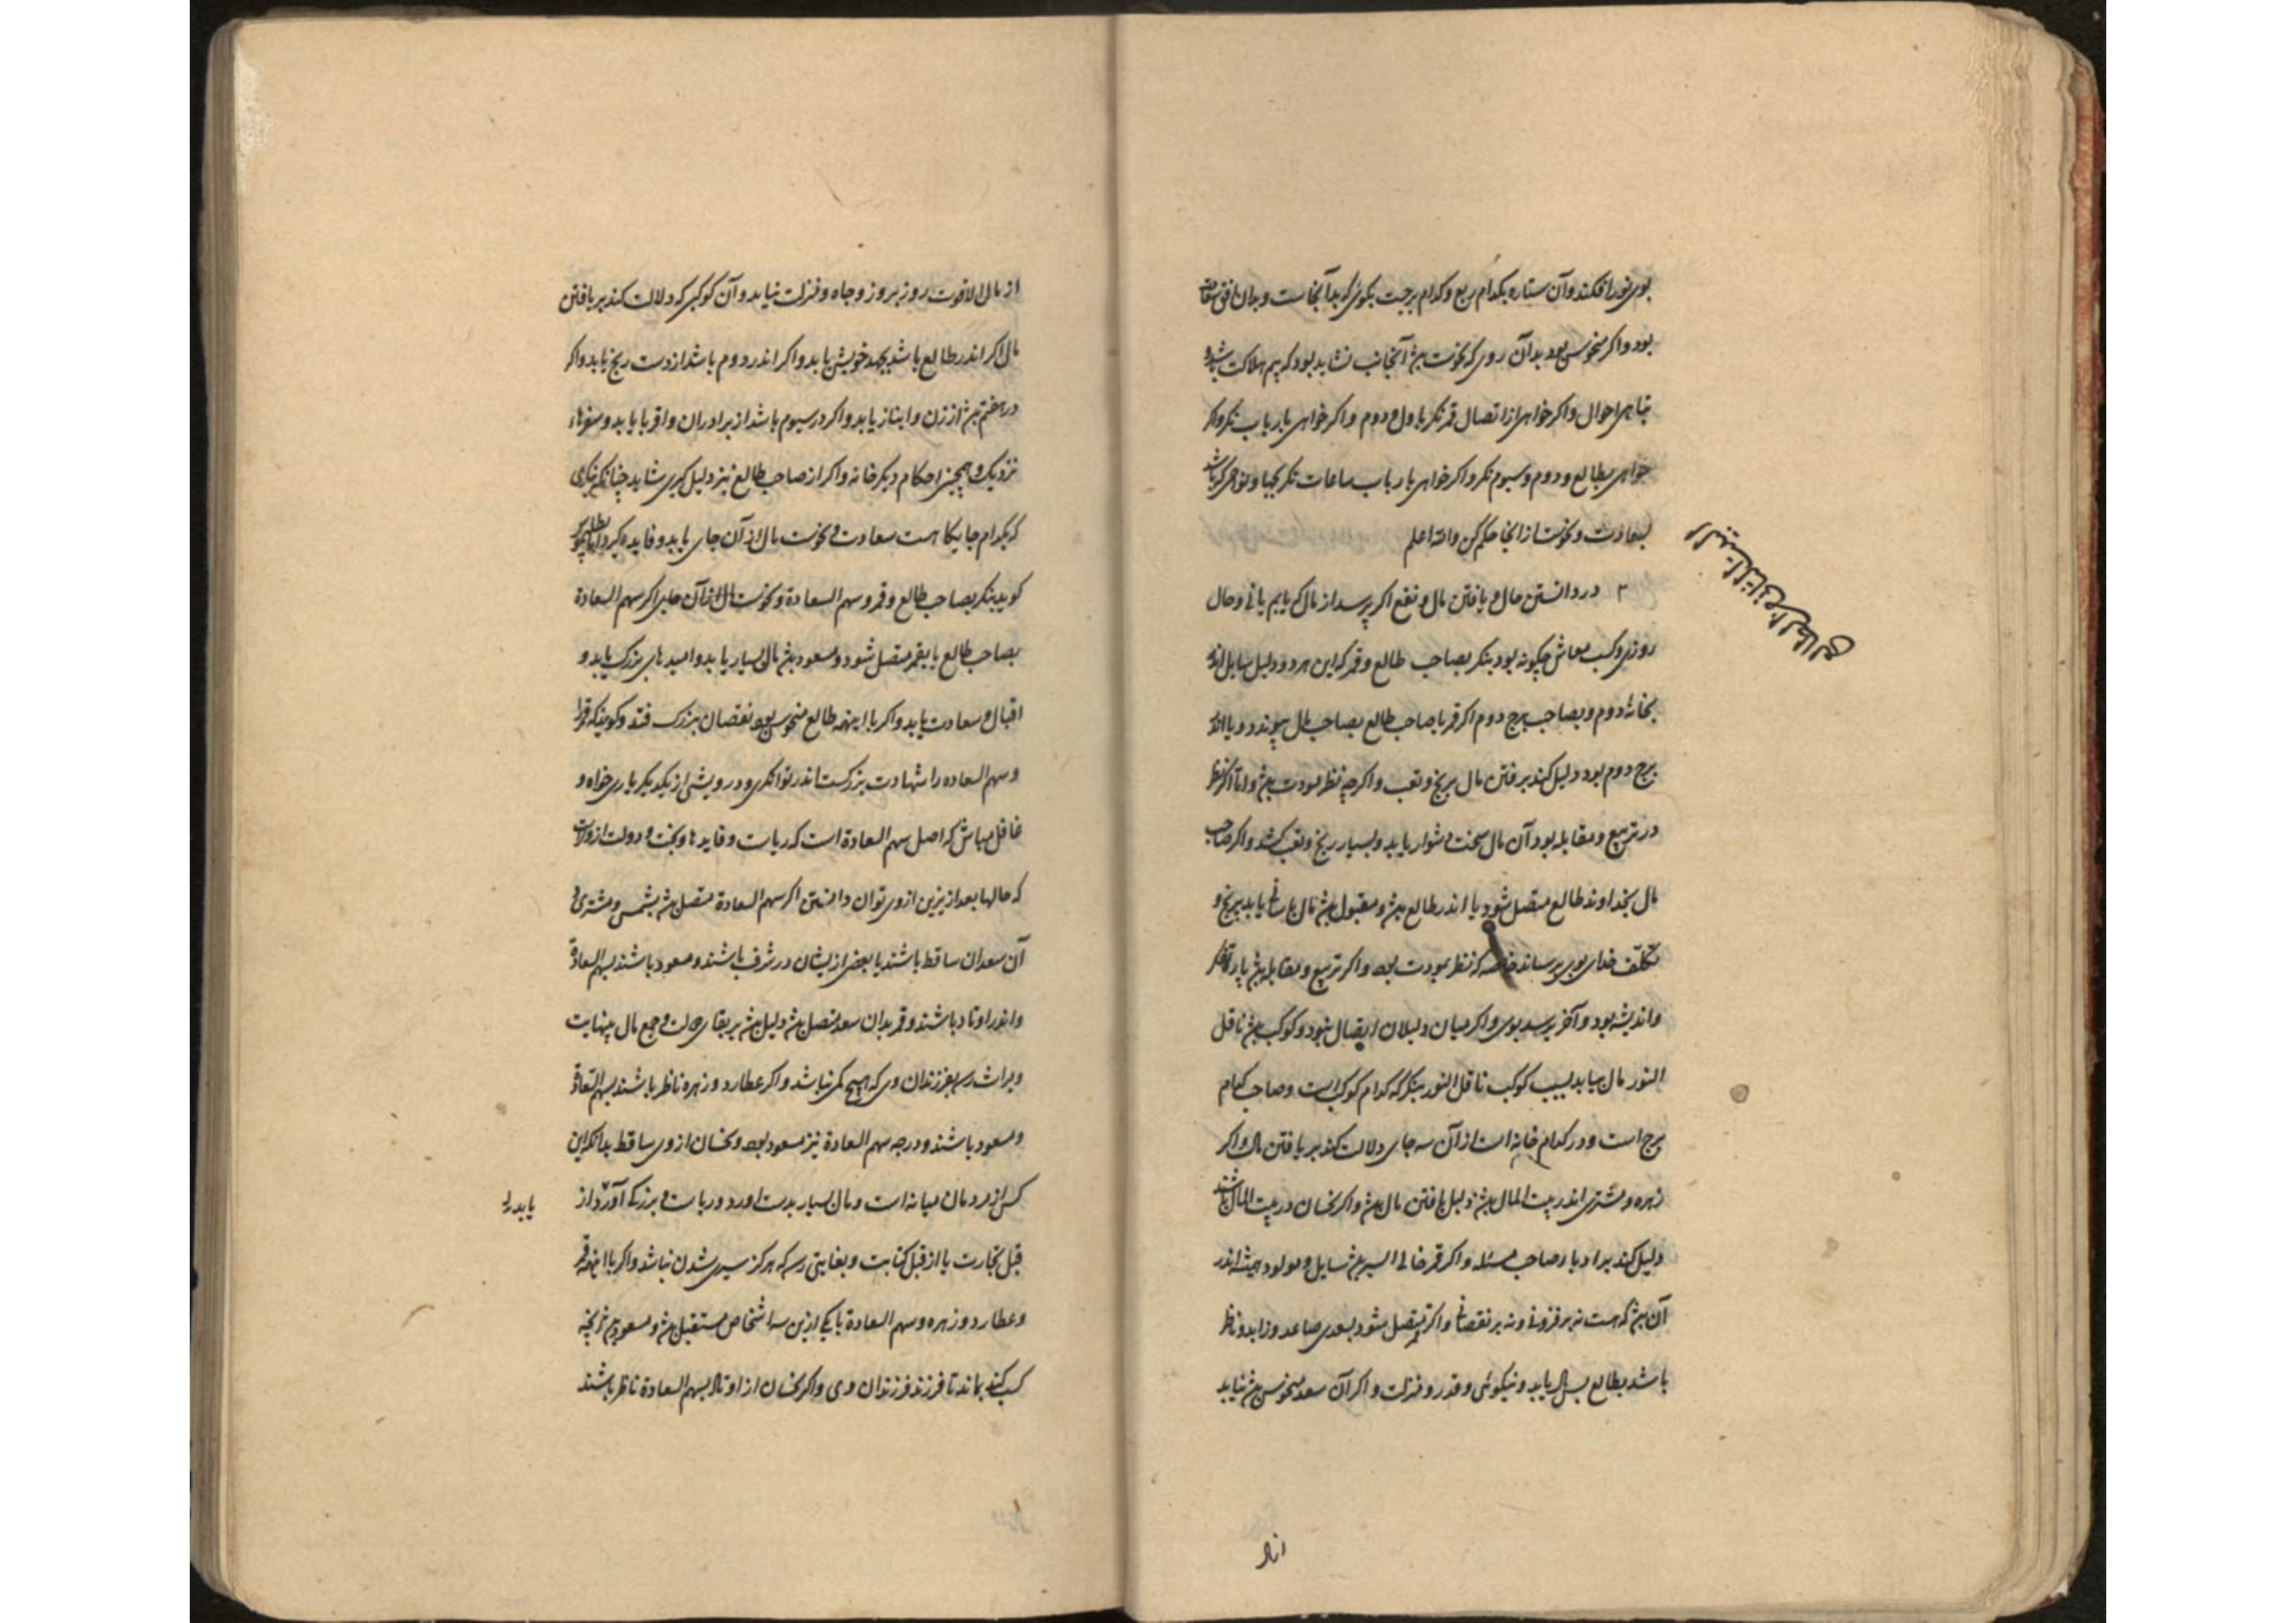 بوی نور افکند و آن ستاره بکدام ربع و کدام برجست بکوئی که بدآنجاست و بدان افق
بود و اکر منحوس بود بدآن روی که نحوست بود آنجانب نشاید بود که بیم هلاکت
تباهی احوال و اکر خواهی از اتصال قمر نکر باول و دوم و اکر خواهی بارباب نکر و اکر
خواهی بطالع و دوم و سیوم نکر و اکر خواهی بارباب ساعات نکر
بسعادت و نحوست از انجا حکم کن والله اعلم
البیت الثانی من الطالع
۲ در دانستن حال و یافتن مال و نفع اکر پرسد از مال که یابم یا نی و حال
روزی و کسب معاش چکونه بود بنکر بصاحب طالع و قمر که این هر دو دلیل سایل اند
بخانهٔ دوم و بصاحب برج دوم اکر قمر یا صاحب طالع بصاحب مال پیوندد و یا اندر
برج دوم بود دلیل کند بر یافتن مال برنج و تعب و اکرچه نظر مودت
در تربیع و مقابله بود آن مال سخت دشوار یابد و بسیار رنج و تعب کشد و اکر صاحب
مال بخداوند طالع متصل شود یا اندر طالع بود و مقبول بود مال باسانی یابد بیرنج و
تکلف خدای بوی برساند خاصه که نظر بمودت بود و اکر تربیع و مقابله بود
و اندیشه بود و آخر برسد بوی و اکر میان دلیلان اتصال نبود و کوکب بود ناقل
النور مال بیابد بسبب کوکب ناقل النور بنکر که کدام کوکب است و صاحب کدام
برج است و در کدام خانه است از آن سه جای دلالت کند بر یافتن مال و اکر
زهره و مشتری اندر بیت المال بود دلیل یافتن مال بود و اکر نحسان در بیت المال باشند
دلیل کند بر ادبار صاحب مسئله و اکر قمر خالی السیر بود سایل و مولود همیشه اندر
آن بود که هست نه بر فزونی و نه بر نقصانی و اکر قمر متصل شود بسعدی صاعد و زاید و ناظر
باشد بطالع بس مال یابد و نیکوئی و قدر و منزلت و اکر آن سعد منحوس بود نیابد
از مال
از مال الا قوت روز بروز و جاه و منزلت نیابد و آن کوکبی که دلالت کند بر یافتن
مال اکر اندر طالع باشد بجهد خویش یابد و اکر اندر دوم باشد از دست رنج یابد و اکر
در هفتم بود از زن و انباز یابد و اکر در سیوم باشد از برادران و اقربا یابد و سفرهاء
نزدیک و همچنین احکام دیکر خانه و اکر از صاحب طالع نیز دلیل کیری شاید چنانکه بنکری
که بکدام جایکاهست سعادت و نحوست مال از آن جای یابد و فایده کیرد
کوید بنکر بصاحب طالع و قمر و سهم السعادة و نحوست مال از آن جای اکر سهم السعادة
بصاحب طالع یا بقمر متصل شود و مسعود بود مال بسیار یابد و امیدهای بزرک یابد و
اقبال و سعادت یابد و اکر با اینهمه طالع منحوس بود نقصان بزرک فتد و کویند که قمر را
و سهم السعاده را شهادت بزرکست اندر توانکری و درویشی از یکدیکر یاری خواه و
غافل مباش که اصل سهم السعادة است که ریاست و فایدها و بخت و دولت از
که حالها بعد ازین از وی توان دانستن اکر سهم السعادة متصل بود بشمس و مشتری و
آن سعدان ساقط باشند یا بعضی ازیشان در شرف باشند و مسعود باشند بسهم السعادة
و اندر اوتاد باشند و قمر بدان سعد متصل بود دلیل بود بر بقای حالت و جمع مال بینهایت
ومیراث رسد بفرزندان وی که هیچ کمی نباشد و اکر عطارد و زهره ناظر باشند بسهم السعادة
و مسعود باشند و درجه سهم السعادة نیز مسعود بود و نحسان از وی ساقط بدانکه این
کس از مردمان میانه است و مال بسیار بدست اورد و ریاست و بزرکی آورد از
یابد
قبل تجارت یا از قبل کتابت و بغایتی رسد که هرکز سپری شدن نباشد و اکر با اینهمه قمر
و عطارد و زهره و سهم السعادة با یکی ازین سه اشخاص مستقبل بود و مسعود بود آنچه
کسب کند بماند تا فرزند فرزندان وی و اکر نحسان از اوتاد بسهم السعادة ناظر باشند